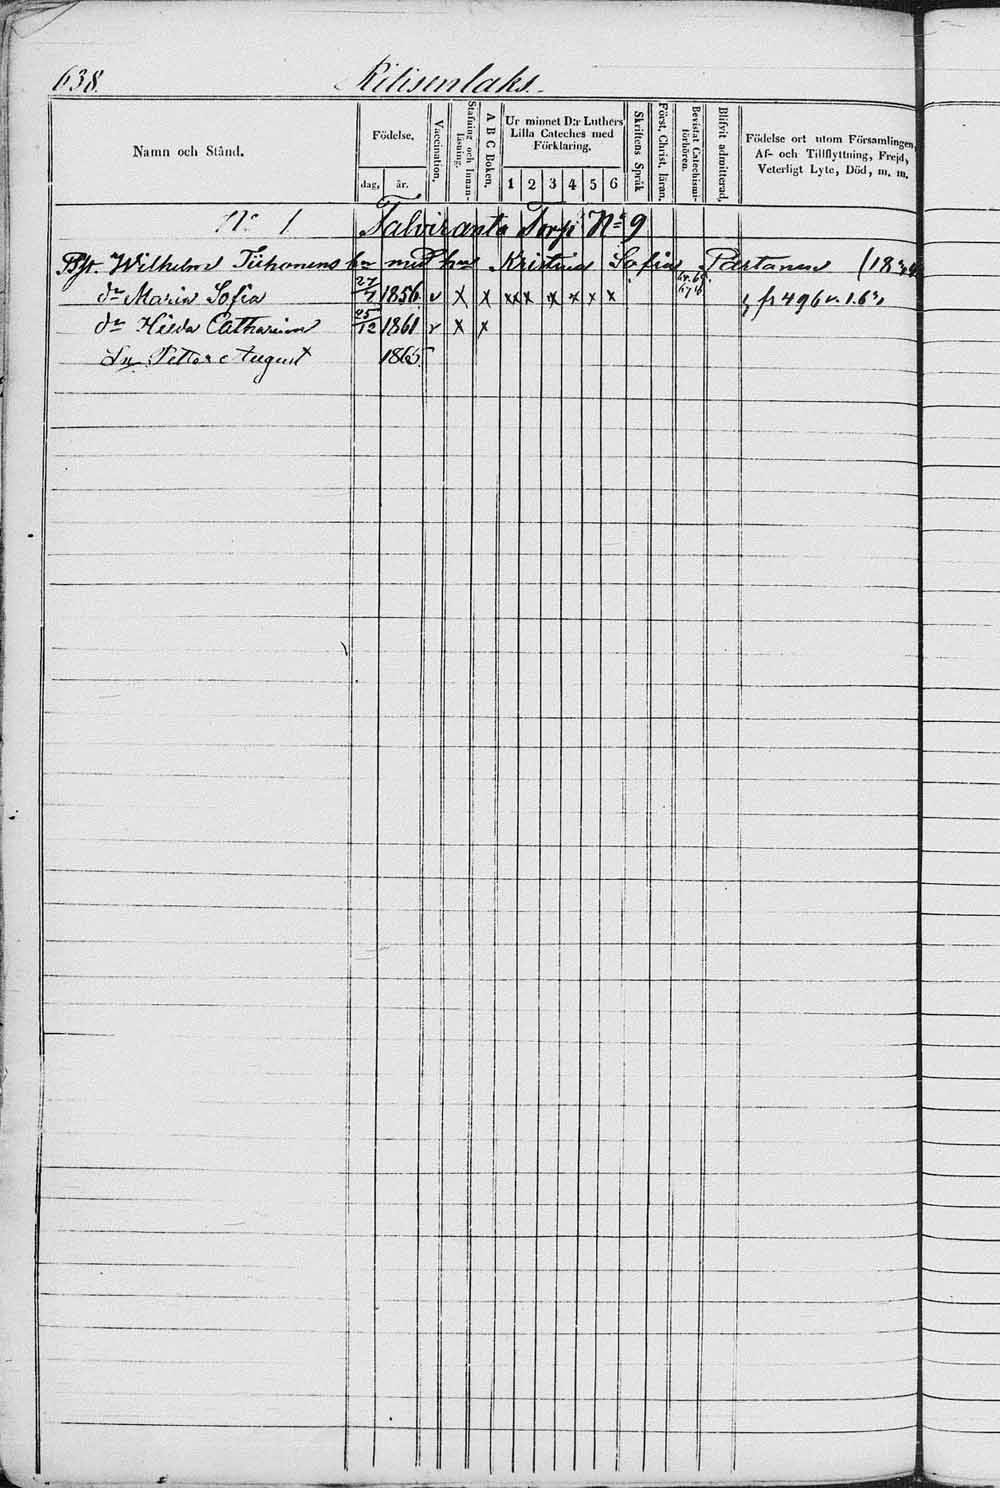 638. Riitisenlaks.
Namn och Stånd.
Födelse.
dag, år.
Vaccination.
Stafning och Innanläsning.
A B C Boken.
Ur minnet D:r Luthers Lilla Cateches med Förklaring.
1 2 3 4 5 6
Skriftens Språk
Först. Christ. läran.
Bevistat Catechismiförhören.
Blifvit admitterad.
Födelse ort utom Församlingen, Af- och Tillflyttning, Frejd, Veterligt Lyte, Död, m. m.
N:o 1 Talviranta Torp N:o 9
Wilhelm Tiihonens med Kristina Sofia Partanen
dr Maria Sofia 27/7 1856 v x x x x x x x x x
dr Hilda Catharina 25/12 1861 v x x
Sn Petter August 1865